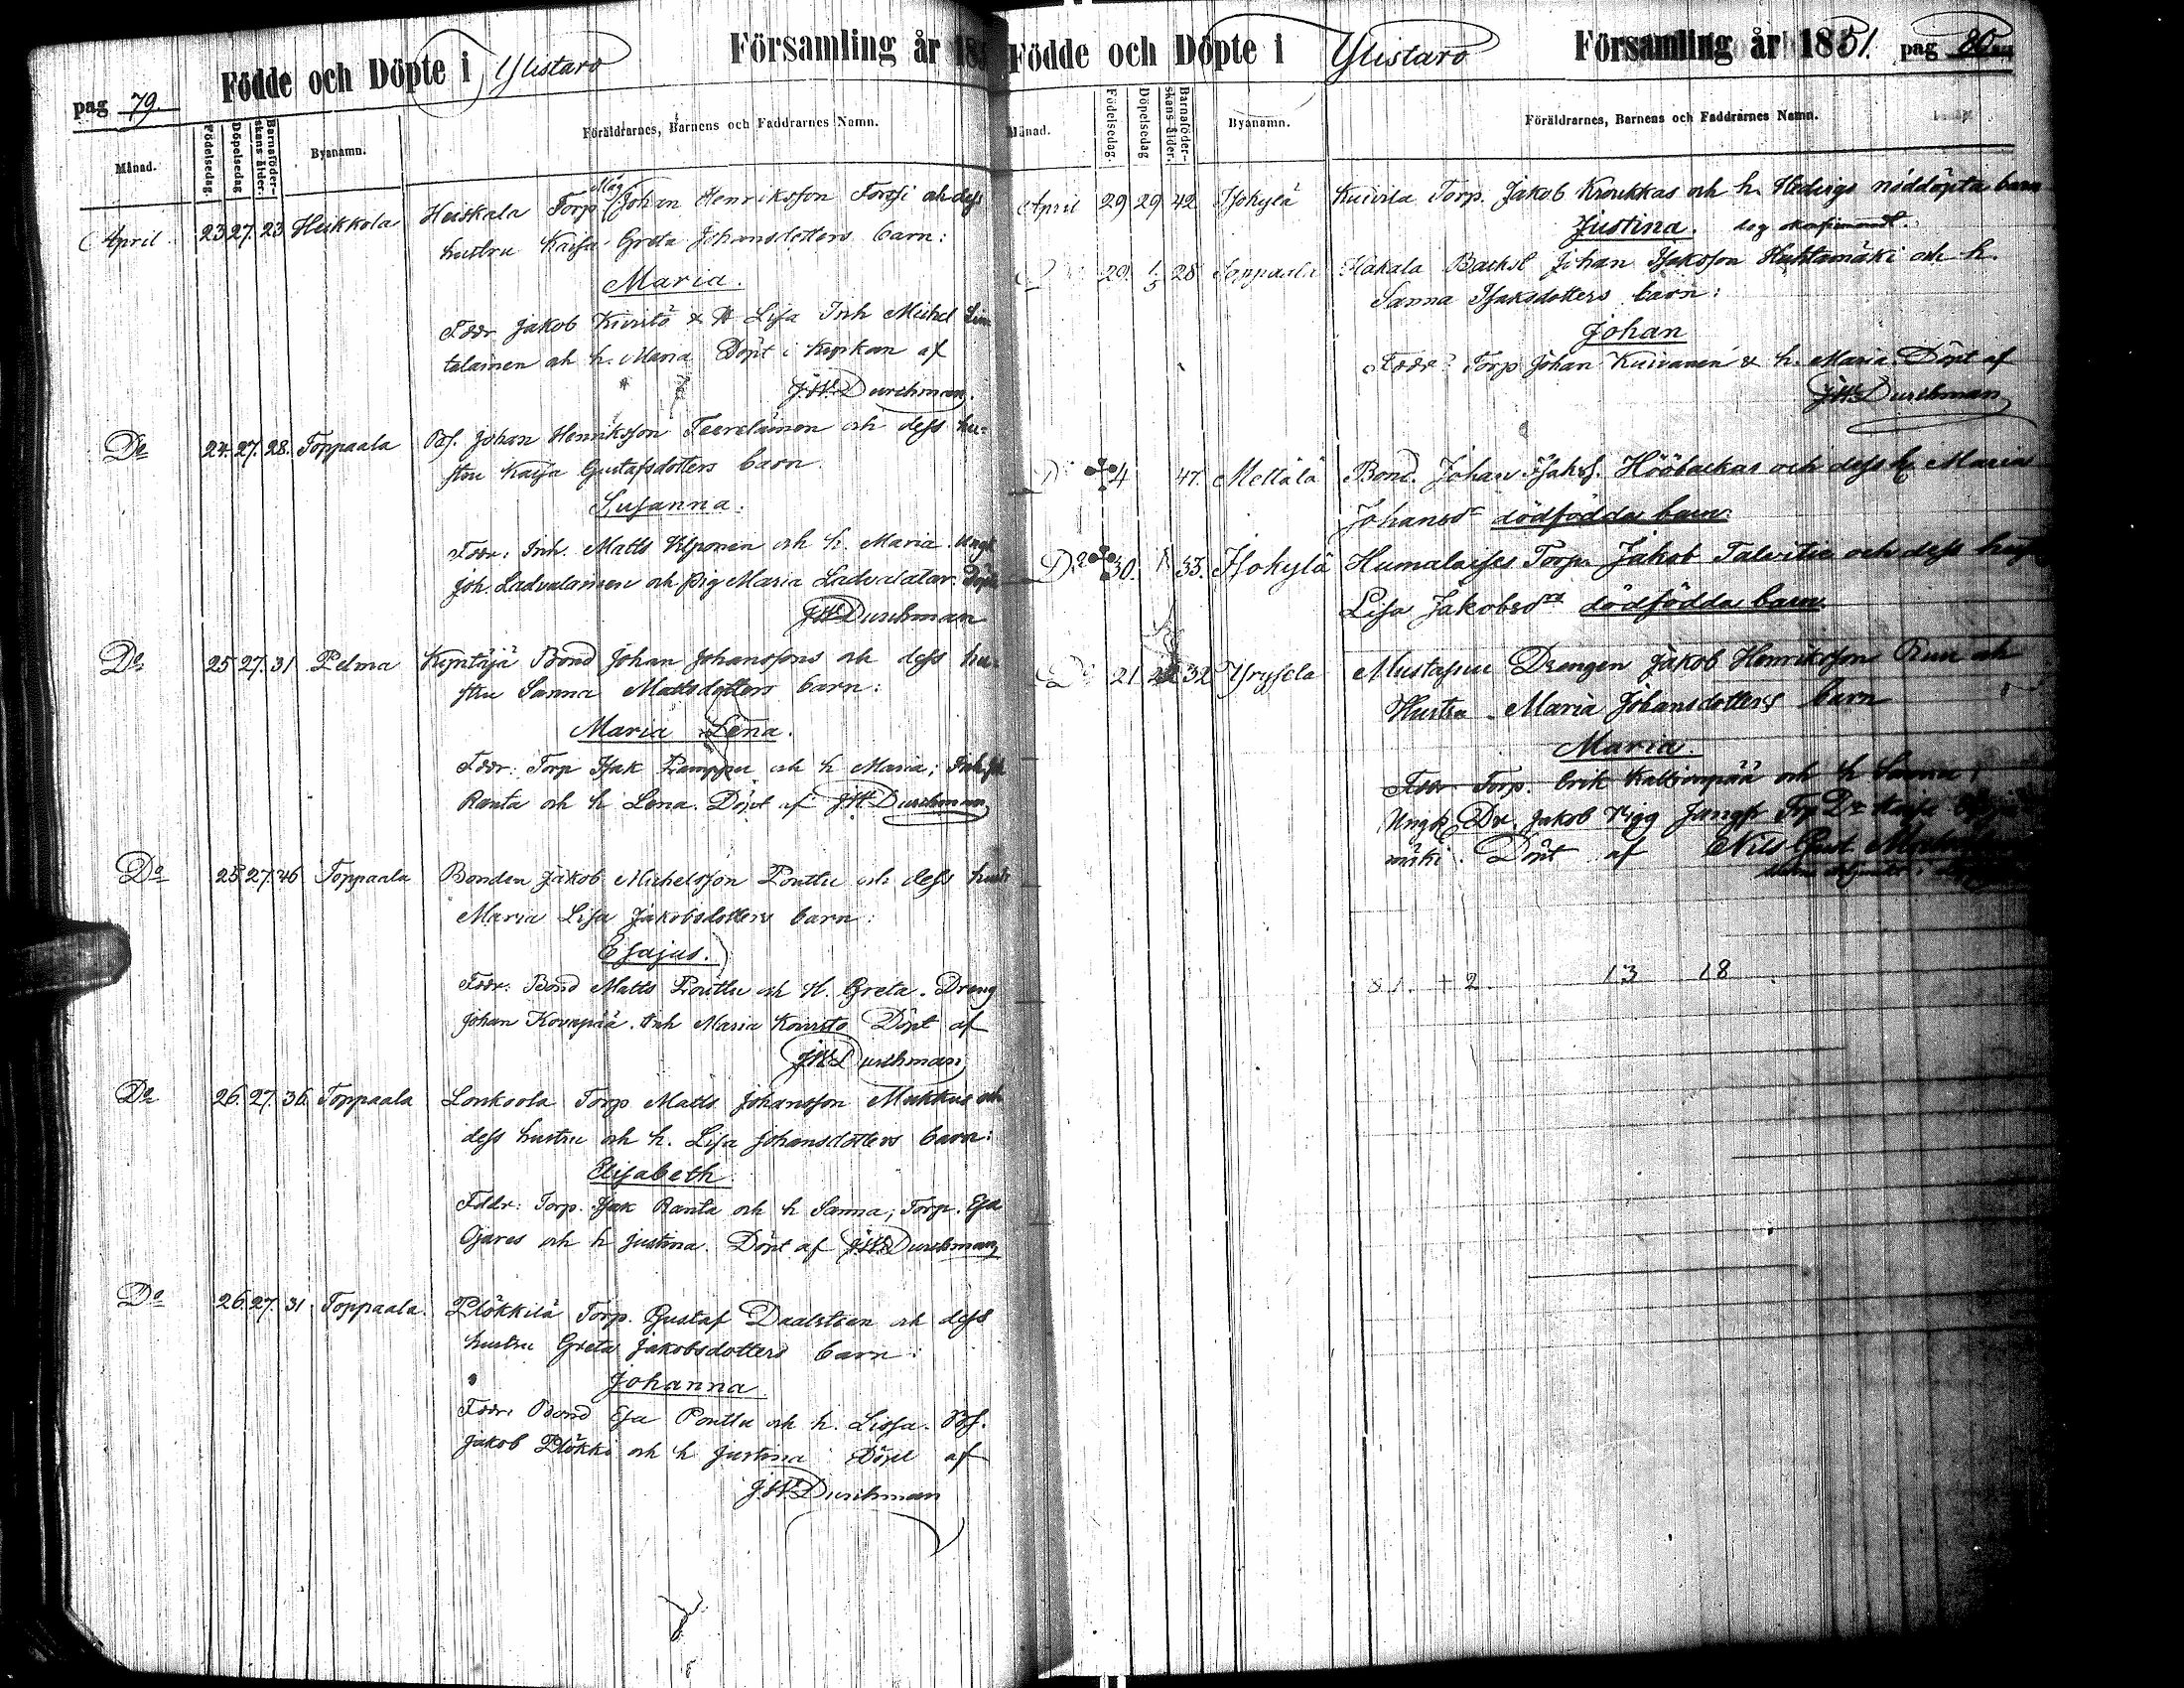 pag 79. Födde och Döpte i Ylistaro Församling år 185
Månad. Födelsedag. Döpelsedag Barnaföderskans ålder. Byanamn. Föräldrarnes, Barnens och Faddrarnes Namn.
April 23 27. 23 Heikkola Heiskala Torp Måg Johan Henriksson Forssi och dess
hustru Kaisa Greta Johansdotters barn:
Maria.
Fddr Jakob Kivistö & H Lisa Inh Michel
talainen och h. Maria Döpt i Kyrkan af
J.W. Durchman.
Do 24. 27. 28. Toppaala Bof. Johan Henriksson Teereläinen och dess hu-
stru Kaisa Gustafsdotters barn
Susanna.
Fddr: Inh. Matts Vilponen och h. Maria. Ungk
Joh. Ladvalainen och pig Maria Ladvalatar. Döpt
J.W. Durchman
Do 25 27. 31 Pelma Bond Johan Johanssons och dess hu-
stru Sanna Mattsdotters barn:
Maria Lena.
Fddr: Torp Isak och h Maria;
Ranta och h Lena. Döpt af J.W. Durchman
Do 25 27. 46 Toppaala Bonden Jakob Michelsson Pouttu och dess hustr
Maria Lisa Jakobsdotters barn:
Esajas.
Fddr. Bond Matts Pouttu och H. Greta. Dreng
Johan Inh Maria Koivisto Döpt af
J.W. Durchman
Do 26. 27. 36. Toppaala Lonkoola Torp Matts Johansson Mukkus och
dess hustru och h. Lisa Johansdotters barn:
Elisabeth
Fddr: Torp. Isak Ranta och h Sanna; Torp. Esa
Ojares och h Justina. Döpt af J.W. Durchman
Do 26. 27. 31. Toppaala. Plökkilä Torp. Gustaf och dess
hustru Greta Jakobsdotters barn:
Johanna
Fddr. Bond Esa Pouttu och h. Lissa. Bof.
Jakob Plökki och h Justina Döpt af
J.W. Durchman
Födde och Döpte i Ylistaro Församling år 1851. pag 80
Månad. Födelsedag. Döpelsedag Barnaföderskans ålder. Byanamn. Föräldrarnes, Barnens och Faddrarnes Namn.
April 29 29 42 Isokylä Kuivila Torp. Jakob Kroukkas och h. Hedvigs nöddöpta barn
Justina.
Do 29. 1/5 28 Toppaala Hakala Backst Johan Isaksson Huhtamäki och h.
Sanna Isaksdotters barn:
Johan
Fddr: Torp Johan Kuivanen & h. Maria. Döpt af
J.W. Durchman
Do 4 47. Mellälä Bond. Johan Isaks. Hööbackas och dess h. Maria
Johansdr dödfödda barn.
Do 30. 33. Isokylä Humalajses Torp. Jakob Talvitie och dess
Lisa Jakobsdr dödfödda barn
Do 21 32 Yryselä Mustapuu Drengen Jakob Henriksson Ruu och
Hustru Maria Johansdotters barn
Maria.
Fddr Torp. Erik och h Sanna,
Ungk. Dr. Jakob Jungfr
mäki. Döpt af Nils Gust.
+ 2 13 18